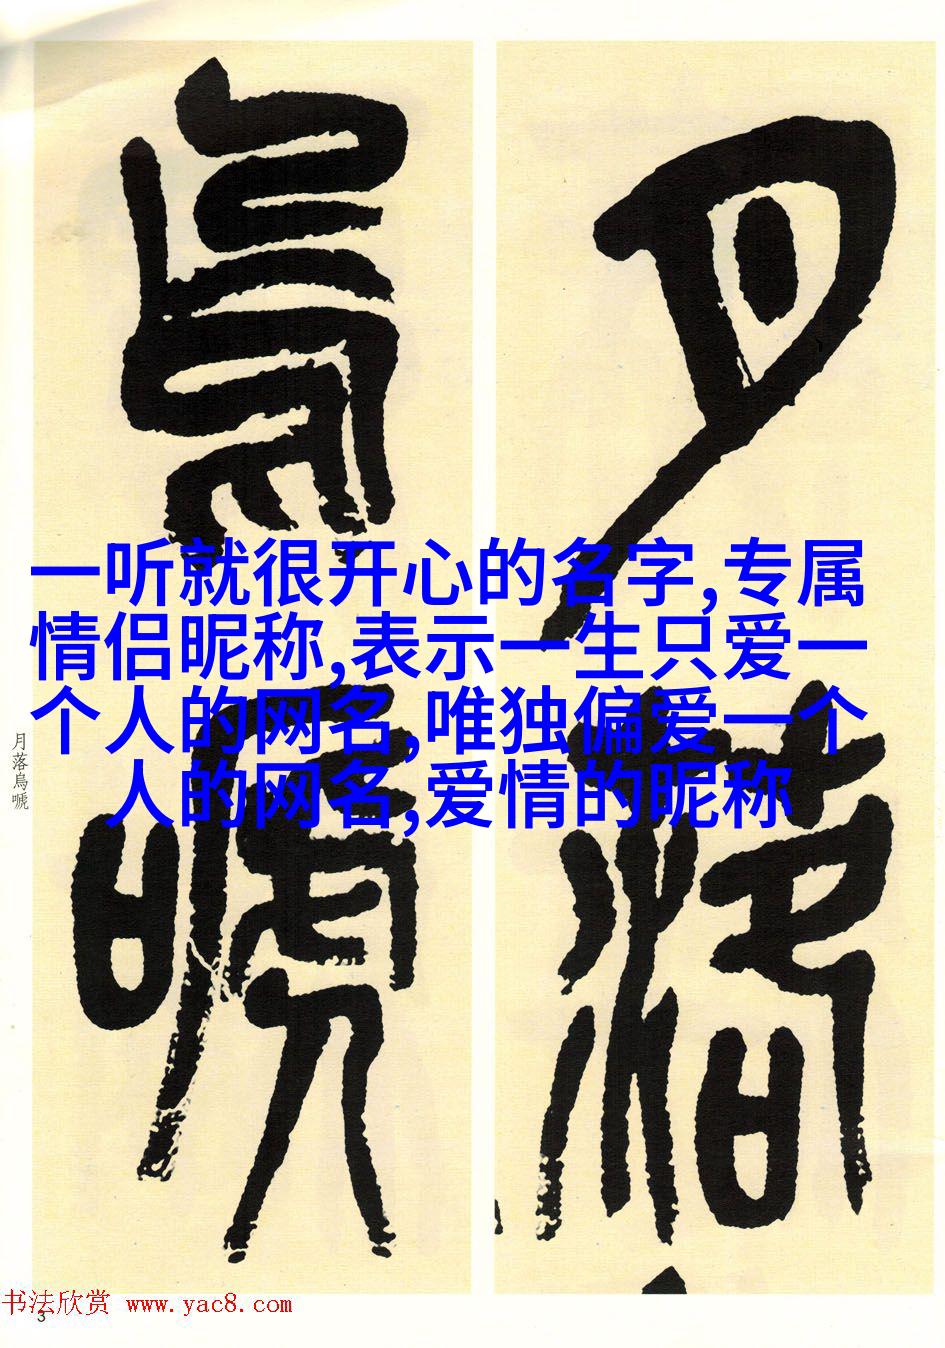 月落
烏嗁
一听就很开心的名字,专属
情侣昵称,表示一生只爱一
个人的网名,唯独偏爱一个
人的网名,爱情的昵称
月落烏嗁
书法欣赏 www.yac8.com
3